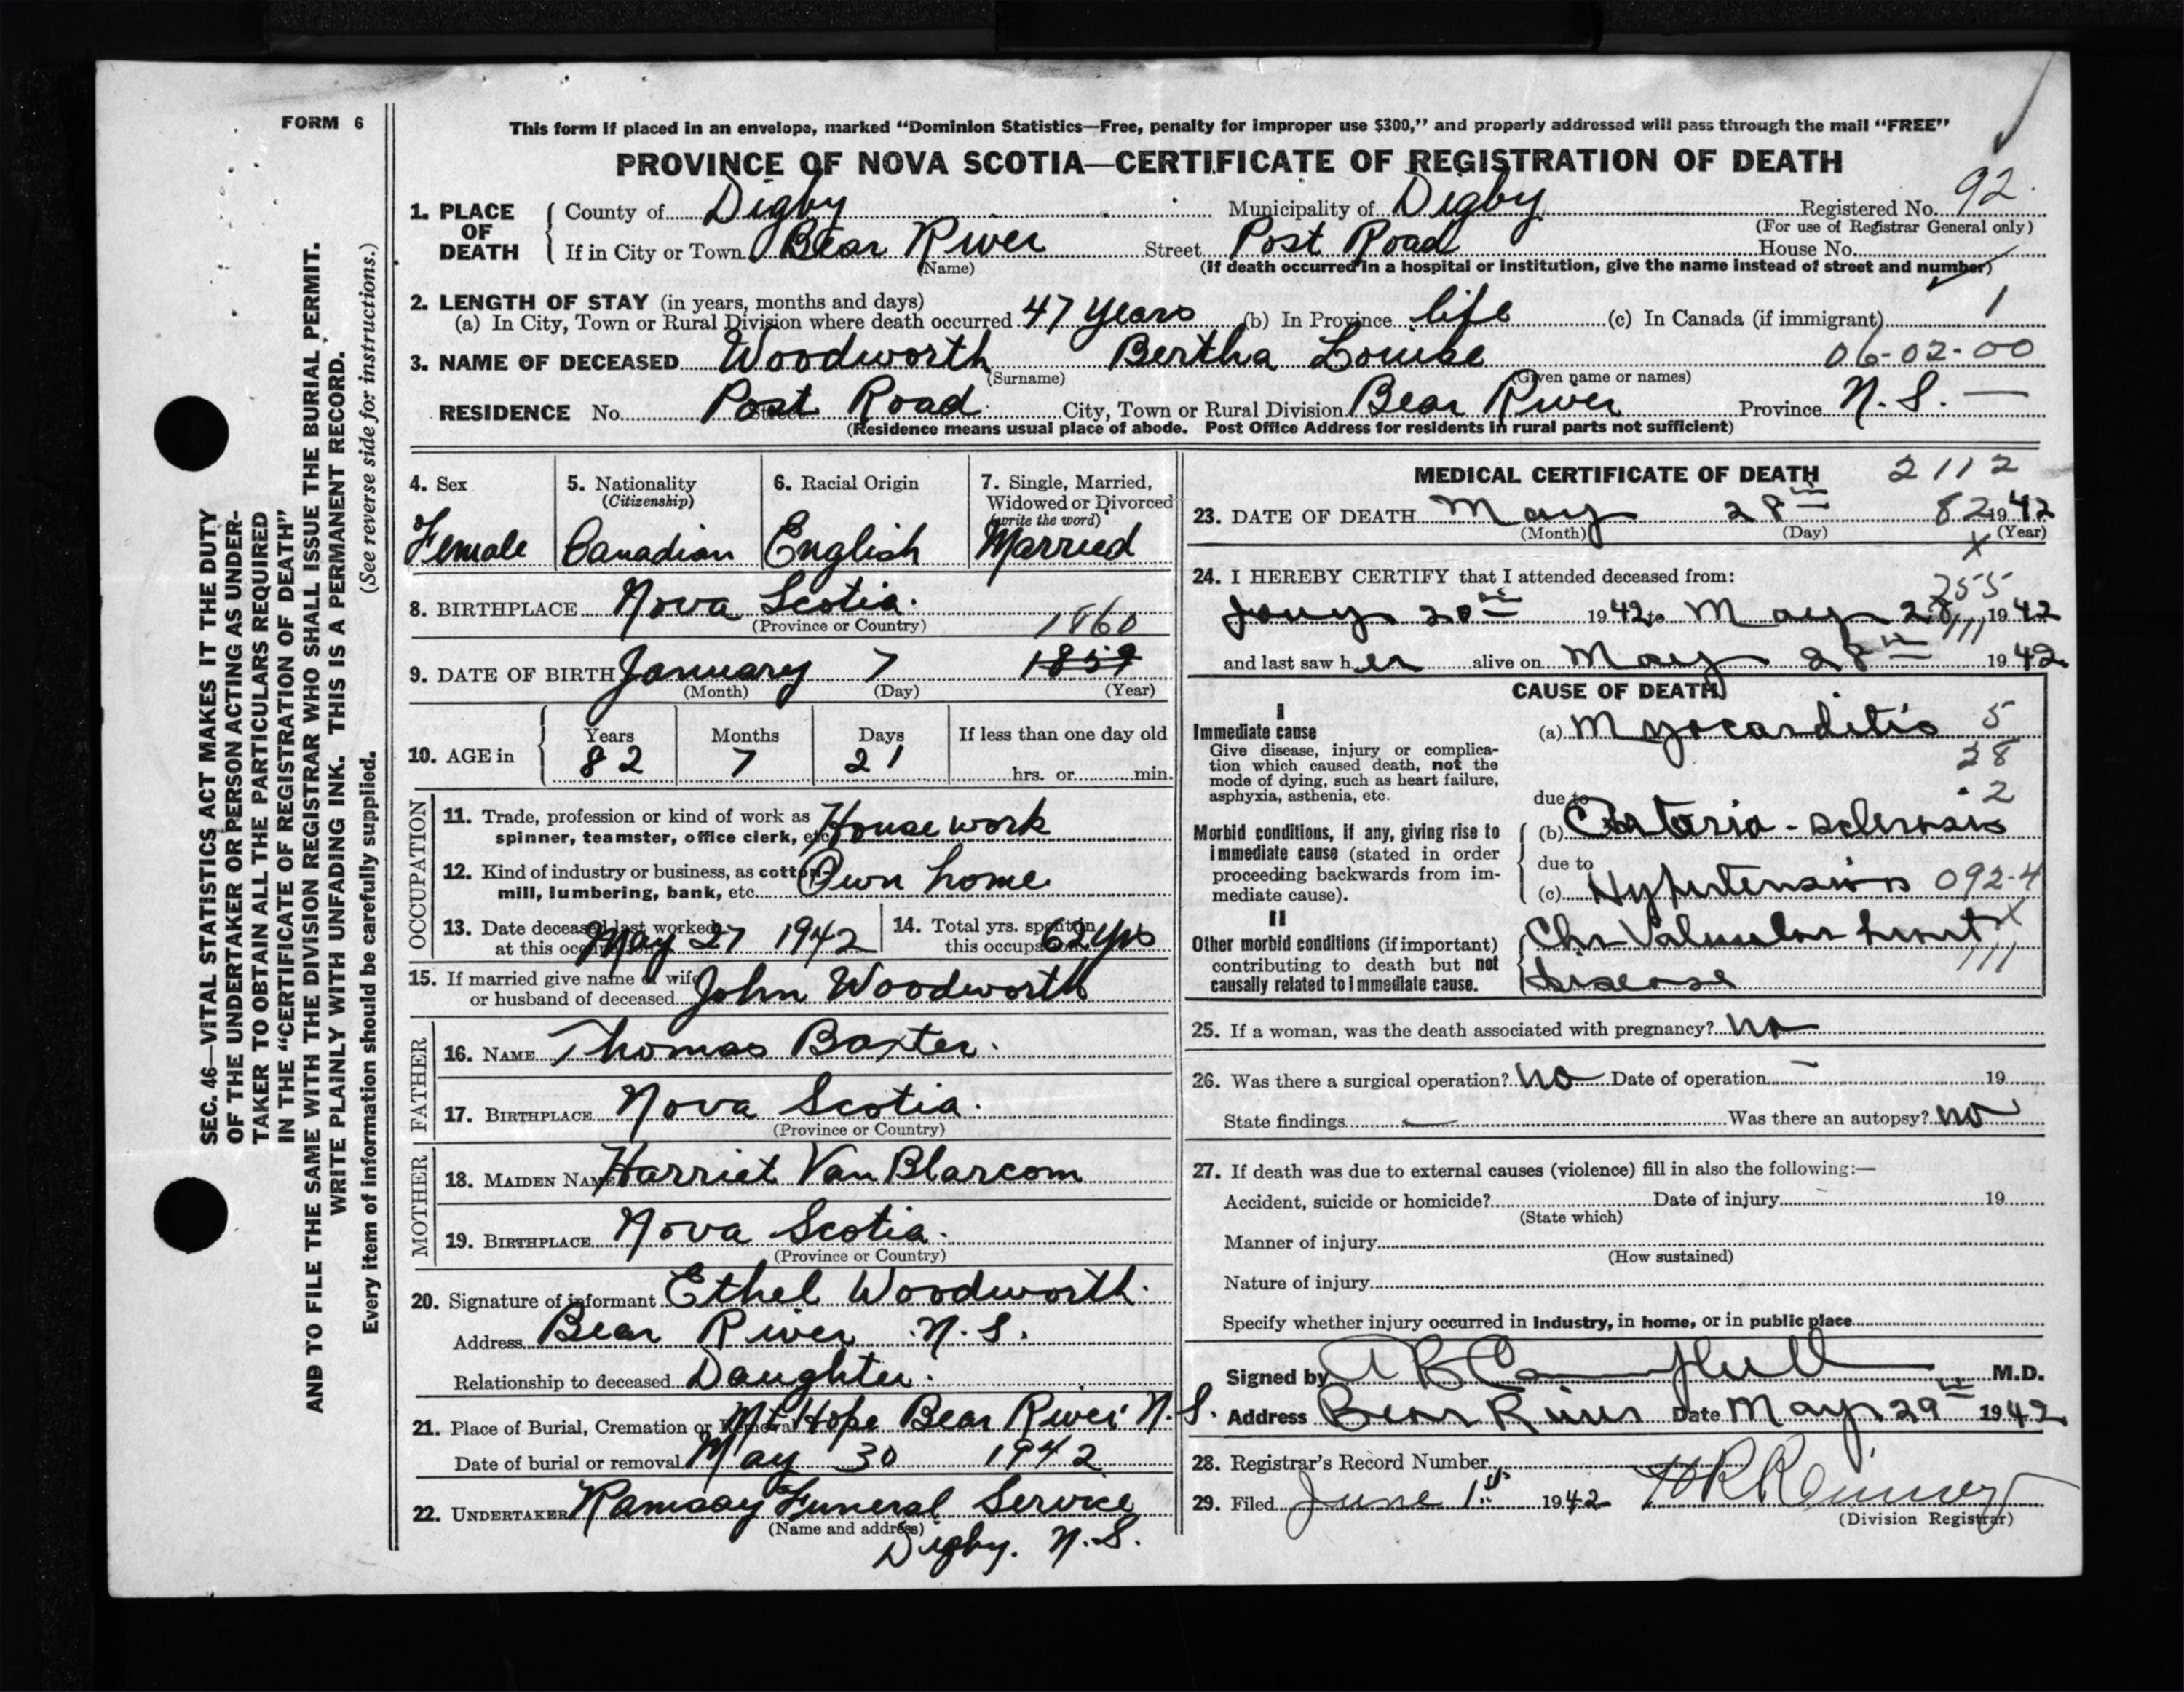 FORM 6
This form if placed in an envelope, marked “Dominion Statistics—Free, penalty for improper use $300,” and properly addressed will pass through the mail “FREE”
PROVINCE OF NOVA SCOTIA—CERTIFICATE OF REGISTRATION OF DEATH
1. PLACE OF DEATH County of Digby Municipality of Digby Registered No. 92
(For use of Registrar General only)
If in City or Town Bear River Street Post Road House No.
(Name) (If death occurred in a hospital or institution, give the name instead of street and number)
2. LENGTH OF STAY (in years, months and days)
(a) In City, Town or Rural Division where death occurred 47 years (b) In Province life (c) In Canada (if immigrant) 1
3. NAME OF DECEASED Woodworth Bertha Louise 06-02-00
(Surname) (Given name or names)
RESIDENCE No. Post Road City, Town or Rural Division Bear River Province N.S. —
Street
(Residence means usual place of abode. Post Office Address for residents in rural parts not sufficient)
4. Sex
Female
5. Nationality
(Citizenship)
Canadian
6. Racial Origin
English
7. Single, Married,
Widowed or Divorced
(write the word)
Married
8. BIRTHPLACE Nova Scotia.
(Province or Country)
1860
9. DATE OF BIRTH January 7 1859
(Month) (Day) (Year)
10. AGE in
Years Months Days If less than one day old
82 7 21 hrs. or min.
OCCUPATION
11. Trade, profession or kind of work as
spinner, teamster, office clerk, etc. Housework
12. Kind of industry or business, as cotton-
mill, lumbering, bank, etc. Own home
13. Date deceased last worked
at this occupation May 27 1942
14. Total yrs. spent in
this occupation 62 yrs
15. If married give name of wife
or husband of deceased John Woodworth
FATHER
16. NAME Thomas Baxter.
17. BIRTHPLACE Nova Scotia.
(Province or Country)
MOTHER
18. MAIDEN NAME Harriet Van Blarcom
19. BIRTHPLACE Nova Scotia.
(Province or Country)
20. Signature of informant Ethel Woodworth.
Address Bear River N.S.
Relationship to deceased Daughter.
21. Place of Burial, Cremation or Removal Mt Hope Bear River N.S.
Date of burial or removal May 30 1942
22. UNDERTAKER Ramsay Funeral Service
(Name and address)
Digby. N.S.
MEDICAL CERTIFICATE OF DEATH 2112
23. DATE OF DEATH May 28th 82 1942
(Month) (Day) (Year)
X
24. I HEREBY CERTIFY that I attended deceased from:
255
Jany 20th 1942 to May 28, 1942
111
and last saw her alive on May 28th 1942
CAUSE OF DEATH
I
Immediate cause
Give disease, injury or complica-
tion which caused death, not the
mode of dying, such as heart failure,
asphyxia, asthenia, etc.
(a) Myocarditis 5
28
2
due to
Morbid conditions, if any, giving rise to
immediate cause (stated in order
proceeding backwards from im-
mediate cause).
(b) Arterio-sclerosis
due to
(c) Hypertension 092-4
II
Other morbid conditions (if important)
contributing to death but not
causally related to immediate cause.
Chr Valvular heart X
disease 111
25. If a woman, was the death associated with pregnancy? no
26. Was there a surgical operation? no Date of operation — 19
State findings — Was there an autopsy? no
27. If death was due to external causes (violence) fill in also the following:—
Accident, suicide or homicide? Date of injury 19
(State which)
Manner of injury
(How sustained)
Nature of injury
Specify whether injury occurred in industry, in home, or in public place
Signed by A B Campbell M.D.
Address Bear River Date May 29th 1942
28. Registrar’s Record Number
29. Filed June 1st 1942
(Division Registrar)
SEC. 46—VITAL STATISTICS ACT MAKES IT THE DUTY
OF THE UNDERTAKER OR PERSON ACTING AS UNDER-
TAKER TO OBTAIN ALL THE PARTICULARS REQUIRED
IN THE “CERTIFICATE OF REGISTRATION OF DEATH”
AND TO FILE THE SAME WITH THE DIVISION REGISTRAR WHO SHALL ISSUE THE BURIAL PERMIT.
WRITE PLAINLY WITH UNFADING INK. THIS IS A PERMANENT RECORD.
Every item of information should be carefully supplied. (See reverse side for instructions.)